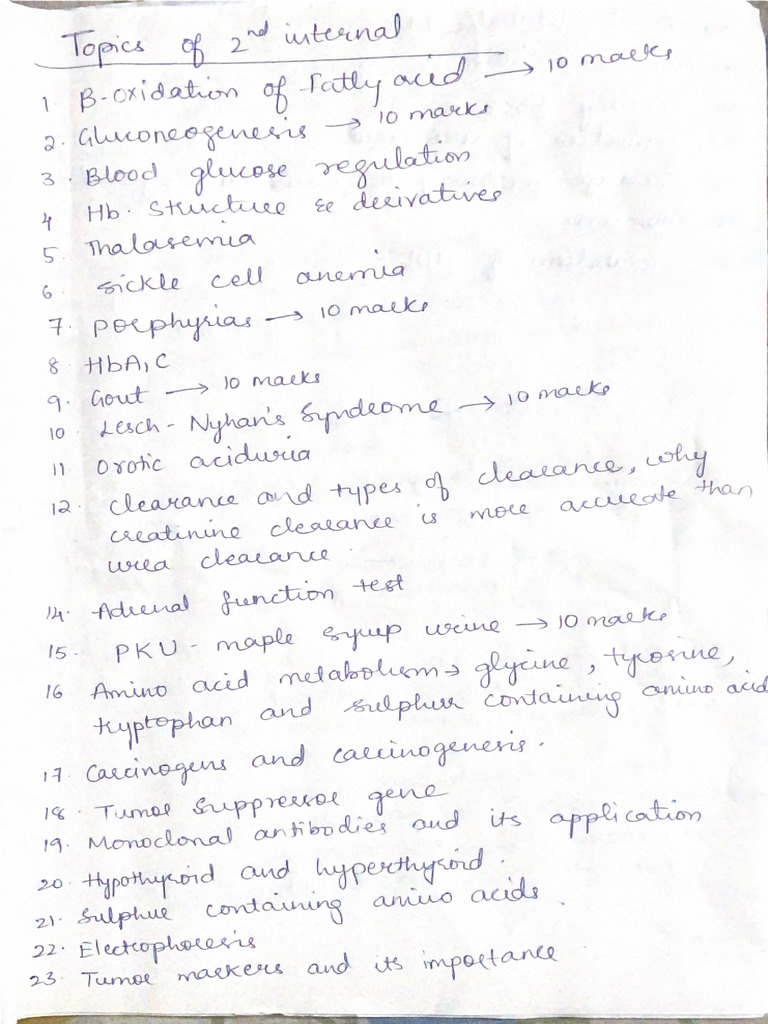 Topics of 2nd internal
1. β-oxidation of Fatty acid → 10 marks
2. Gluconeogenesis → 10 marks
3. Blood glucose regulation
4 Hb. Structure & derivatives
5. Thalasemia
6. Sickle cell anemia
7. Porphyrias → 10 marks
8. HbA1C
9. Gout → 10 marks
10. Lesch-Nyhan's Syndrome → 10 marks
11 Orotic aciduria
12. Clearance and types of clearance, why
creatinine clearance is more accurate than
urea clearance.
14. Adrenal function test
15. PKU - maple syrup urine → 10 marks
16 Amino acid metabolism → glycine, tyrosine,
tryptophan and sulphur containing amino acid
17. Carcinogens and carcinogenesis.
18. Tumor suppressor gene
19. Monoclonal antibodies and its application
20. Hypothyroid and hyperthyroid.
21. Sulphur containing amino acids.
22. Electrophoresis
23. Tumor markers and its importance